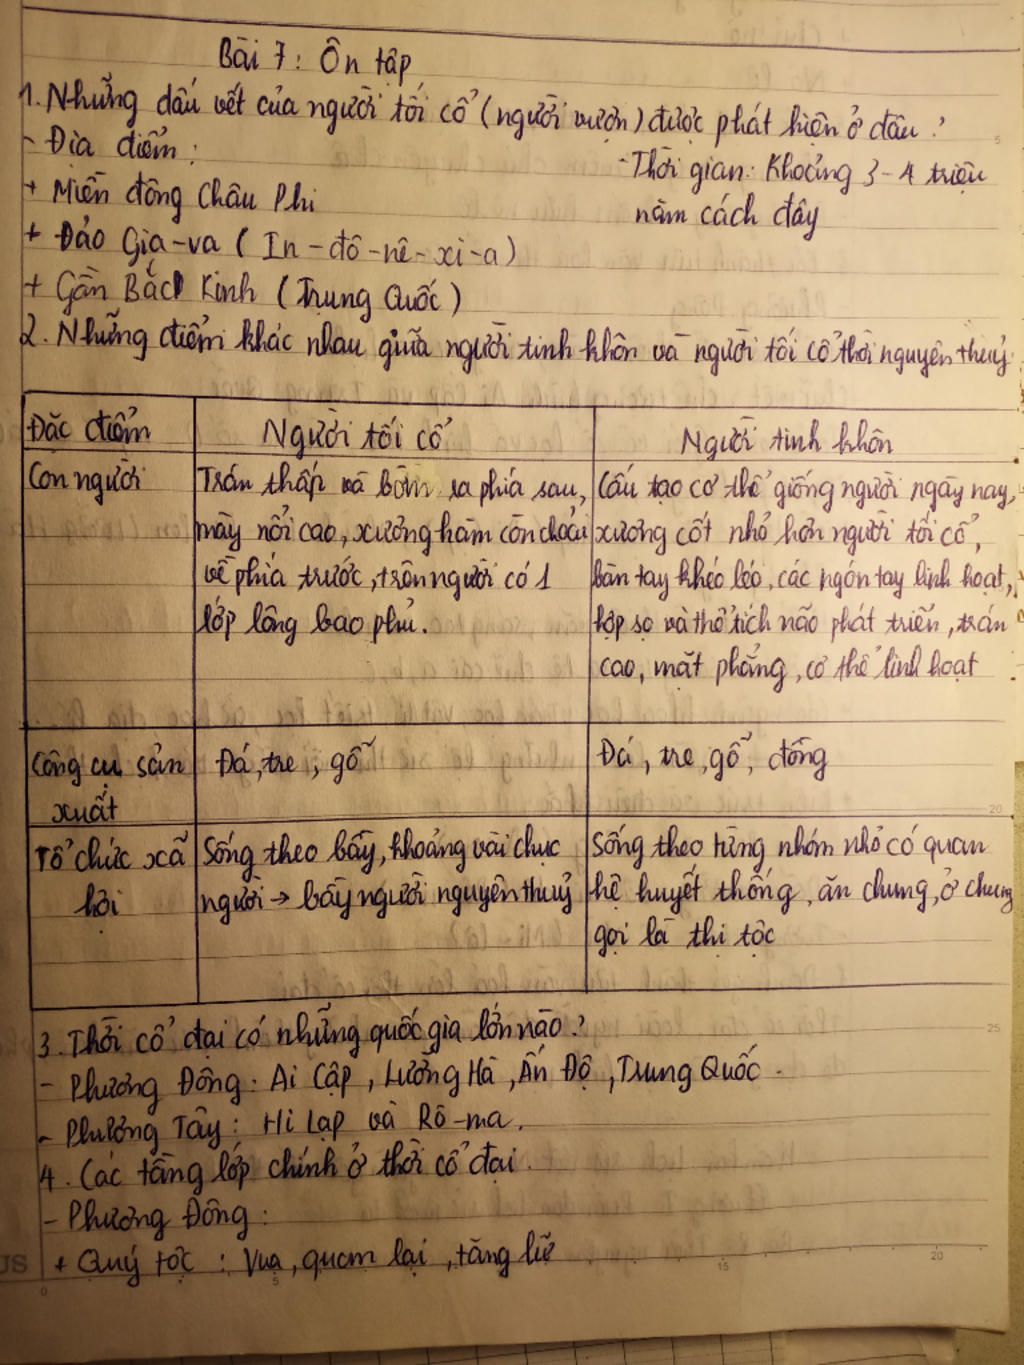 Bài 7: Ôn tập
1. Những dấu vết của người tối cổ (người vượn) được phát hiện ở đâu?
- Địa điểm:
- Thời gian: Khoảng 3-4 triệu
năm cách đây
+ Miền đông Châu Phi
+ Đảo Gia-va (In-đô-nê-xi-a)
+ Gần Bắc Kinh (Trung Quốc)
2. Những điểm khác nhau giữa người tinh khôn và người tối cổ thời nguyên thuỷ
Đặc điểm
Người tối cổ
Người tinh khôn
Con người
Trán thấp và bợt ra phía sau,
mày nổi cao, xương hàm còn choài
về phía trước, trên người có 1
lớp lông bao phủ.
Cấu tạo cơ thể giống người ngày nay,
xương cốt nhỏ hơn người tối cổ,
bàn tay khéo léo, các ngón tay linh hoạt,
hộp sọ và thể tích não phát triển, trán
cao, mặt phẳng, cơ thể linh hoạt
Công cụ sản
xuất
Đá, tre, gỗ
Đá, tre, gỗ, đồng
Tổ chức xã
hội
Sống theo bầy, khoảng vài chục
người → bầy người nguyên thuỷ
Sống theo từng nhóm nhỏ có quan
hệ huyết thống, ăn chung, ở chung
gọi là thị tộc
3. Thời cổ đại có những quốc gia lớn nào?
- Phương Đông: Ai Cập, Lưỡng Hà, Ấn Độ, Trung Quốc.
- Phương Tây: Hi Lạp và Rô-ma.
4. Các tầng lớp chính ở thời cổ đại.
- Phương Đông:
+ Quý tộc : Vua, quan lại, tăng lữ
JS
0
5
15
20
20
25
5